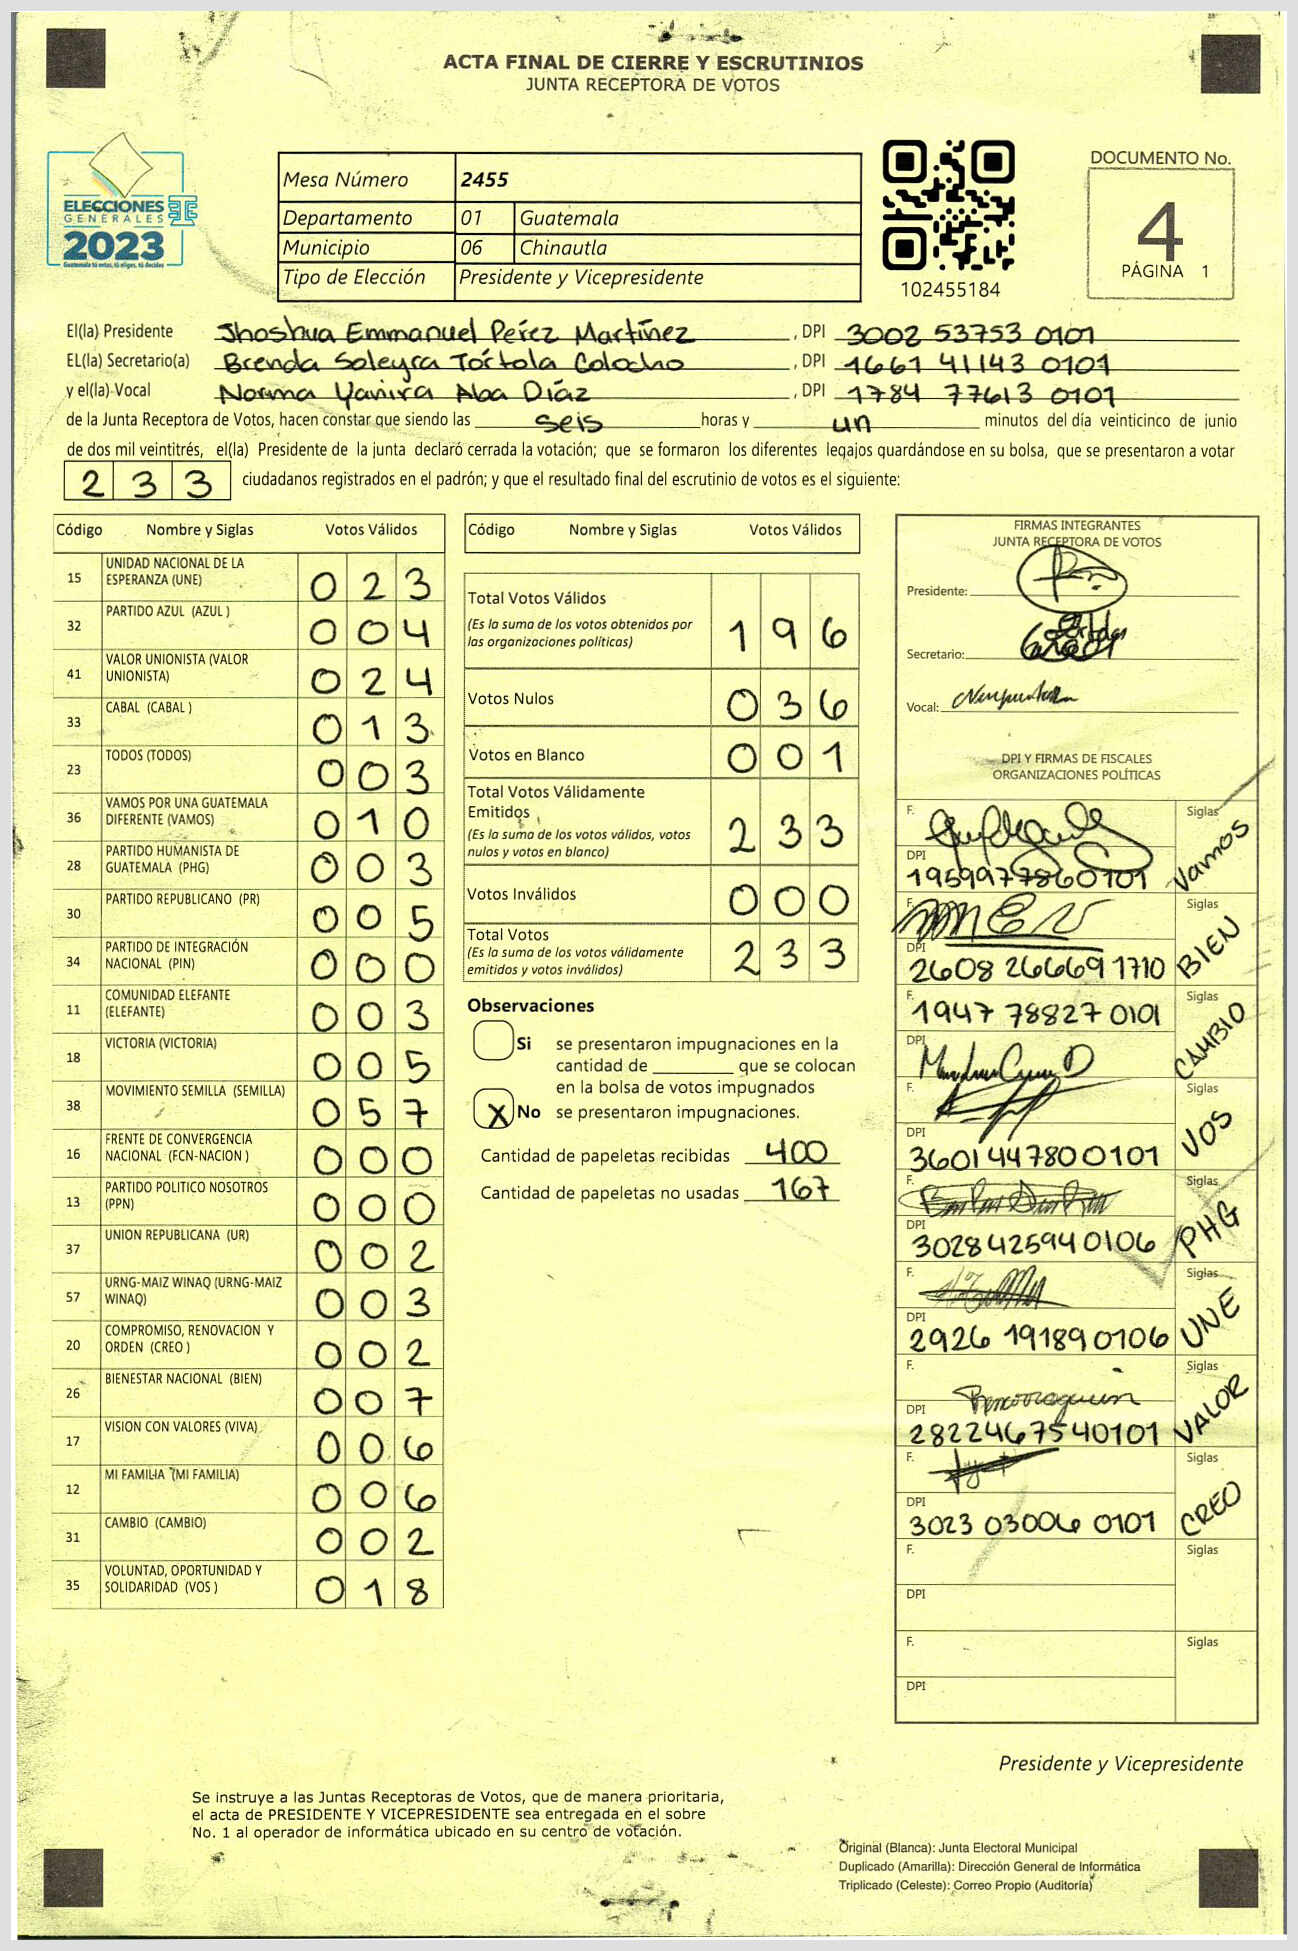 ACTA FINAL DE CIERRE Y ESCRUTINIOS
JUNTA RECEPTORA DE VOTOS
ELECCIONES
GENERALES
2023
Guatemala tú votas, tú eliges, tú decides
Mesa Número 2455
Departamento 01 Guatemala
Municipio 06 Chinautla
Tipo de Elección Presidente y Vicepresidente
102455184
DOCUMENTO No.
4
PÁGINA 1
El(la) Presidente Jhoshua Emmanuel Peréz Martínez , DPI 3002 53753 0101
EL(la) Secretario(a) Brenda Soleyra Tórtola Colocho , DPI 1661 41143 0101
y el(la) Vocal Norma Yanira Aba Díaz , DPI 1784 77613 0101
de la Junta Receptora de Votos, hacen constar que siendo las seis horas y un minutos del día veinticinco de junio
de dos mil veintitrés, el(la) Presidente de la junta declaró cerrada la votación; que se formaron los diferentes legajos guardándose en su bolsa, que se presentaron a votar
233 ciudadanos registrados en el padrón; y que el resultado final del escrutinio de votos es el siguiente:
Código Nombre y Siglas Votos Válidos
15 UNIDAD NACIONAL DE LA ESPERANZA (UNE) 023
32 PARTIDO AZUL (AZUL ) 004
41 VALOR UNIONISTA (VALOR UNIONISTA) 024
33 CABAL (CABAL ) 013
23 TODOS (TODOS) 003
36 VAMOS POR UNA GUATEMALA DIFERENTE (VAMOS) 010
28 PARTIDO HUMANISTA DE GUATEMALA (PHG) 003
30 PARTIDO REPUBLICANO (PR) 005
34 PARTIDO DE INTEGRACIÓN NACIONAL (PIN) 000
11 COMUNIDAD ELEFANTE (ELEFANTE) 003
18 VICTORIA (VICTORIA) 005
38 MOVIMIENTO SEMILLA (SEMILLA) 057
16 FRENTE DE CONVERGENCIA NACIONAL (FCN-NACION ) 000
13 PARTIDO POLITICO NOSOTROS (PPN) 000
37 UNION REPUBLICANA (UR) 002
57 URNG-MAIZ WINAQ (URNG-MAIZ WINAQ) 003
20 COMPROMISO, RENOVACION Y ORDEN (CREO ) 002
26 BIENESTAR NACIONAL (BIEN) 007
17 VISION CON VALORES (VIVA) 006
12 MI FAMILIA (MI FAMILIA) 006
31 CAMBIO (CAMBIO) 002
35 VOLUNTAD, OPORTUNIDAD Y SOLIDARIDAD (VOS ) 018
Código Nombre y Siglas Votos Válidos
Total Votos Válidos 196
(Es la suma de los votos obtenidos por
las organizaciones políticas)
Votos Nulos 036
Votos en Blanco 001
Total Votos Válidamente
Emitidos 233
(Es la suma de los votos válidos, votos
nulos y votos en blanco)
Votos Inválidos 000
Total Votos 233
(Es la suma de los votos válidamente
emitidos y votos inválidos)
Observaciones
Si se presentaron impugnaciones en la
cantidad de ________ que se colocan
en la bolsa de votos impugnados
X No se presentaron impugnaciones.
Cantidad de papeletas recibidas 400
Cantidad de papeletas no usadas 167
FIRMAS INTEGRANTES
JUNTA RECEPTORA DE VOTOS
Presidente:
Secretario:
Vocal:
DPI Y FIRMAS DE FISCALES
ORGANIZACIONES POLÍTICAS
F. Siglas Vamos
DPI 1959977860101
F. Siglas BIEN
DPI 2608 26669 1710
F. 1947 78827 0101 Siglas CAMBIO
DPI
F. Siglas VOS
DPI 3601447800101
F. Siglas PHG
DPI 3028425940106
F. Siglas UNE
DPI 2926 191890106
F. Siglas VALOR
DPI 2822467540101
F. Siglas CREO
DPI 3023 03006 0101
F. Siglas
DPI
F. Siglas
DPI
Presidente y Vicepresidente
Se instruye a las Juntas Receptoras de Votos, que de manera prioritaria,
el acta de PRESIDENTE Y VICEPRESIDENTE sea entregada en el sobre
No. 1 al operador de informática ubicado en su centro de votación.
Original (Blanca): Junta Electoral Municipal
Duplicado (Amarilla): Dirección General de Informática
Triplicado (Celeste): Correo Propio (Auditoría)